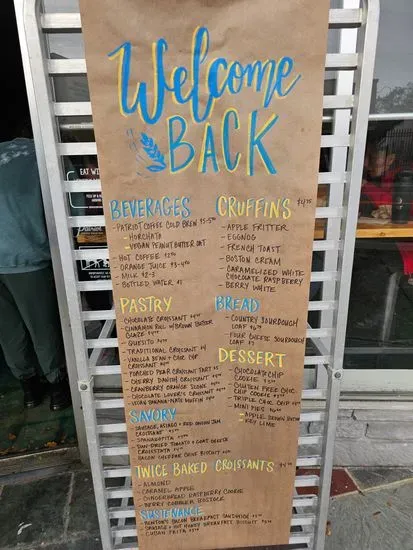 Welcome
BACK
BEVERAGES
- PATRIOT COFFEE COLD BREW $5-5
- HORCHATA
- VEGAN PEANUT BUTTER OAT
- HOT COFFEE
- ORANGE JUICE $3-4
- MILK $2-3
- BOTTLED WATER
CRUFFINS
- APPLE FRITTER
- EGGNOG
- FRENCH TOAST
- BOSTON CREAM
- CARAMELIZED WHITE
CHOCOLATE RASPBERRY
- BERRY WHITE
PASTRY
- CHOCOLATE CROISSANT
- CINNAMON ROLL W/ BROWN BUTTER
GLAZE
- QUESITO
- TRADITIONAL CROISSANT
- VANILLA BEAN + CHOC CHIP
CROISSANT
- POACHED PEAR CROISSANT TART
- CHERRY DANISH CROISSANT
- CRANBERRY ORANGE SCONE
- CHOCOLATE LOVER'S CROISSANT
- VEGAN BANANA NUT MUFFIN
BREAD
- COUNTRY SOURDOUGH
LOAF
- FOUR CHEESE SOURDOUGH
LOAF
DESSERT
- CHOCOLATE CHIP
COOKIE
- GLUTEN FREE CHOC
CHIP COOKIE
- TRIPLE CHOC CHIP
- MINI PIES
- APPLE BROWN BUTTER
- KEY LIME
SAVORY
- SAUSAGE, ASIAGO + RED ONION JAM
CROISSANT
- SPANAKOPITA
- SUN-DRIED TOMATO + GOAT CHEESE
CROISSANT
BACON CHEDDAR CHIVE BISCUIT
TWICE BAKED CROISSANTS
- ALMOND
- CARAMEL APPLE
- GINGERBREAD RASPBERRY COOKIE
- BERRY COBBLER BOSTOCK
SUSTENANCE
- BENTON'S BACON BREAKFAST SANDWICH
- SAUSAGE + HOT HONEY BREAKFAST BISCUIT
- CUBAN FRITA
EAT WI